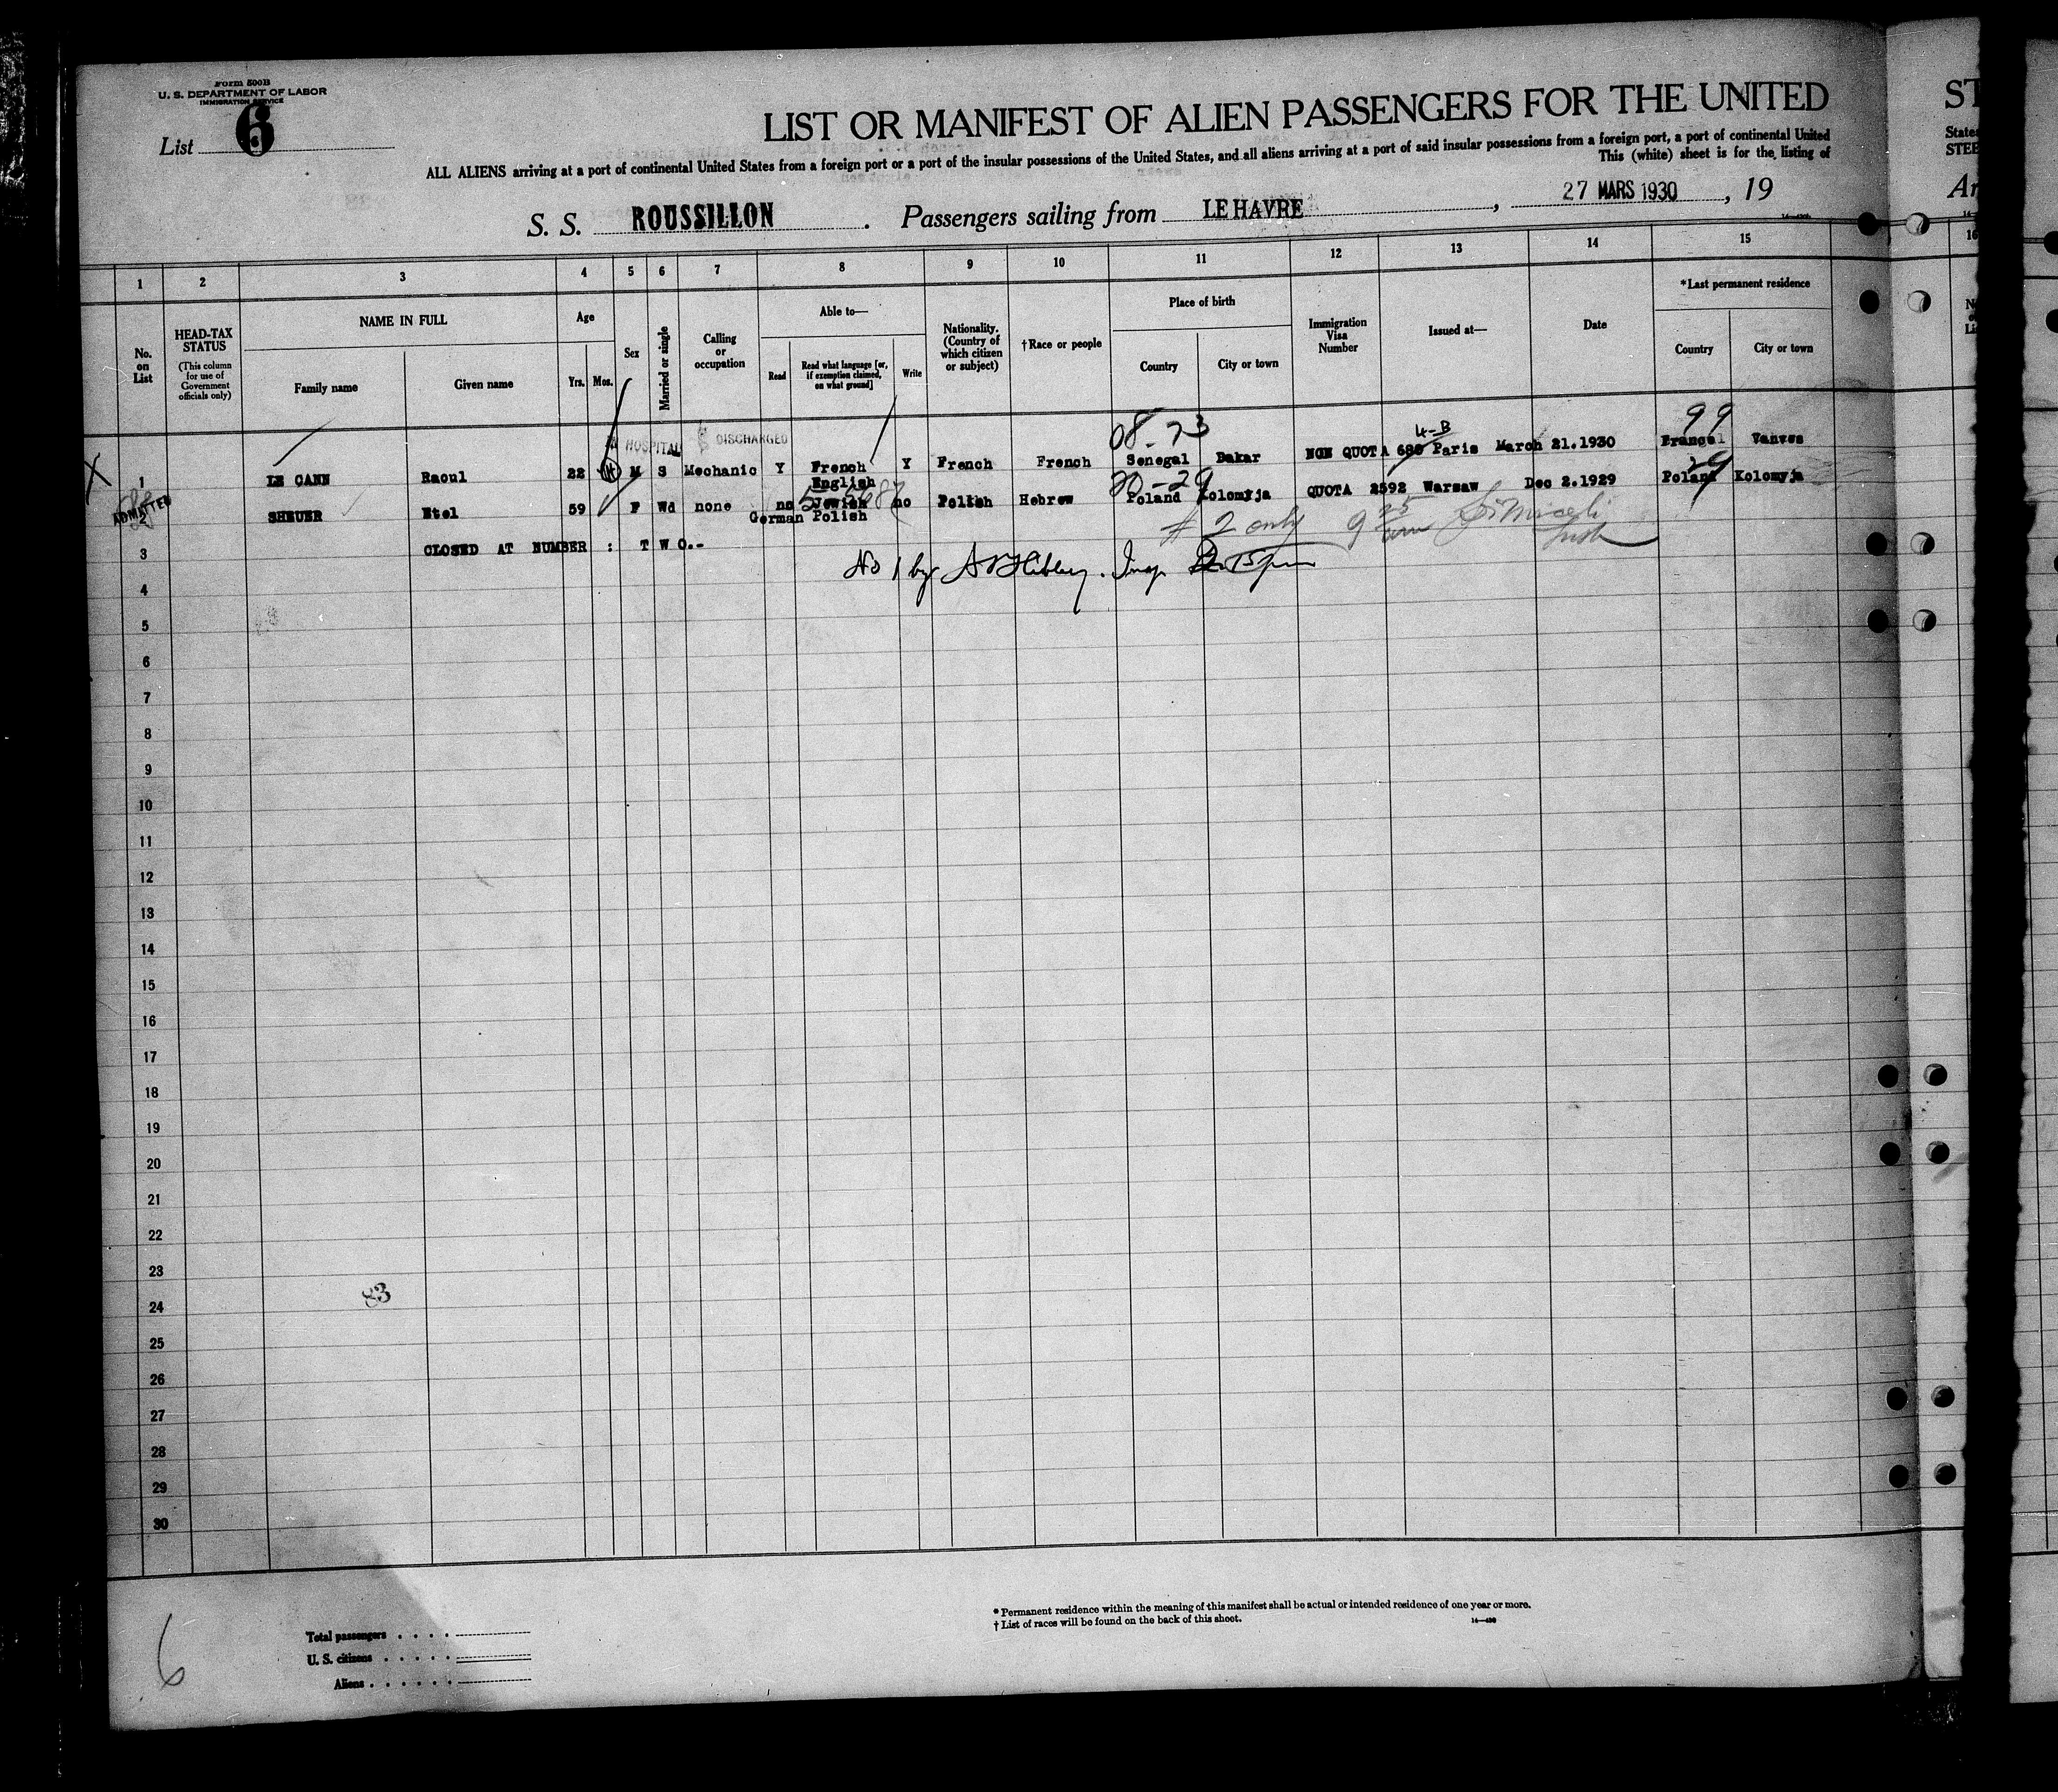 Form 500B
U. S. DEPARTMENT OF LABOR
IMMIGRATION SERVICE
List 6
LIST OR MANIFEST OF ALIEN PASSENGERS FOR THE UNITED
ST
ALL ALIENS arriving at a port of continental United States from a foreign port or a port of the insular possessions of the United States, and all aliens arriving at a port of said insular possessions from a foreign port, a port of continental United
States
This (white) sheet is for the listing of
STEE
S. S. ROUSSILLON. Passengers sailing from LE HAVRE, 27 MARS 1930, 19
Ar
1 2 3 4 5 6 7 8 9 10 11 12 13 14 15 16
No. on List
HEAD-TAX STATUS
(This column for use of Government officials only)
NAME IN FULL
Family name
Given name
Age
Yrs. Mos.
Sex
Married or single
Calling or occupation
Able to—
Read
Read what language [or, if exemption claimed, on what ground]
Write
Nationality. (Country of which citizen or subject)
†Race or people
Place of birth
Country
City or town
Immigration Visa Number
Issued at—
Date
*Last permanent residence
Country
City or town
08-73
4-B
99
HOSPITAL DISCHARGED
X 1 LE CANN Raoul 22 M S Mechanic Y French English Y French French Senegal Dakar NON QUOTA 680 Paris March 21.1930 France Vanves
ADMITTED
2 SHEUER Etel 59 F Wd none no Jewish German Polish no Polish Hebrew Poland Kolomyja QUOTA 2592 Warsaw Dec 2.1929 Poland Kolomyja
# 2 only 9 25
3 CLOSED AT NUMBER : T W O.-
No 1 by
4
5
6
7
8
9
10
11
12
13
14
15
16
17
18
19
20
21
22
23
83
24
25
26
27
28
29
30
* Permanent residence within the meaning of this manifest shall be actual or intended residence of one year or more.
† List of races will be found on the back of this sheet.
14—430
6
Total passengers . . . .
U. S. citizens . . . . .
Aliens . . . . . .